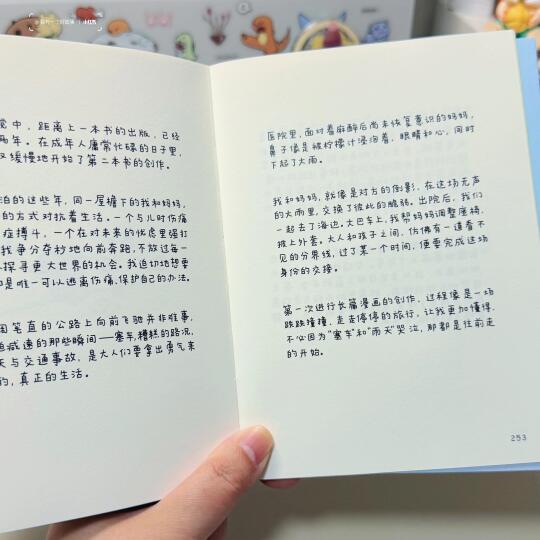 觉中，距离上一本书的出版，已经
两年。在成年人庸常忙碌的日子里，
又缓慢地开始了第二本书的创作。
泊的这些年，同一屋檐下的我和妈妈，
的方式对抗着生活。一个与儿时伤痛
症搏斗，一个在对未来的忧虑里强打
我争分夺秒地向前奔跑，不放过每一
探寻更大世界的机会。我迫切地想要
是唯一可以逃离伤痛，保护自己的办法。
笔直的公路上向前飞驰并非难事，
减速的那些瞬间——塞车，糟糕的路况，
天与交通事故，是大人们要拿出勇气来
的，真正的生活。
医院里，面对着麻醉后尚未恢复意识的妈妈，
鼻子像是被柠檬汁浸泡着，眼睛和心，同时
下起了大雨。
我和妈妈，就像是对方的倒影，在这场无声
的大雨里，交换了彼此的脆弱。出院后，我们
一起去了海边。大巴车上，我帮妈妈调整座椅，
披上外套。大人和孩子之间，仿佛有一道看不
见的分界线，过了某一个时间，便要完成这场
身份的交接。
第一次进行长篇漫画的创作，过程像是一场
跌跌撞撞，走走停停的旅行，让我更加懂得，
不必因为"塞车"和"雨天"哭泣，那都是往前走
的开始。
253